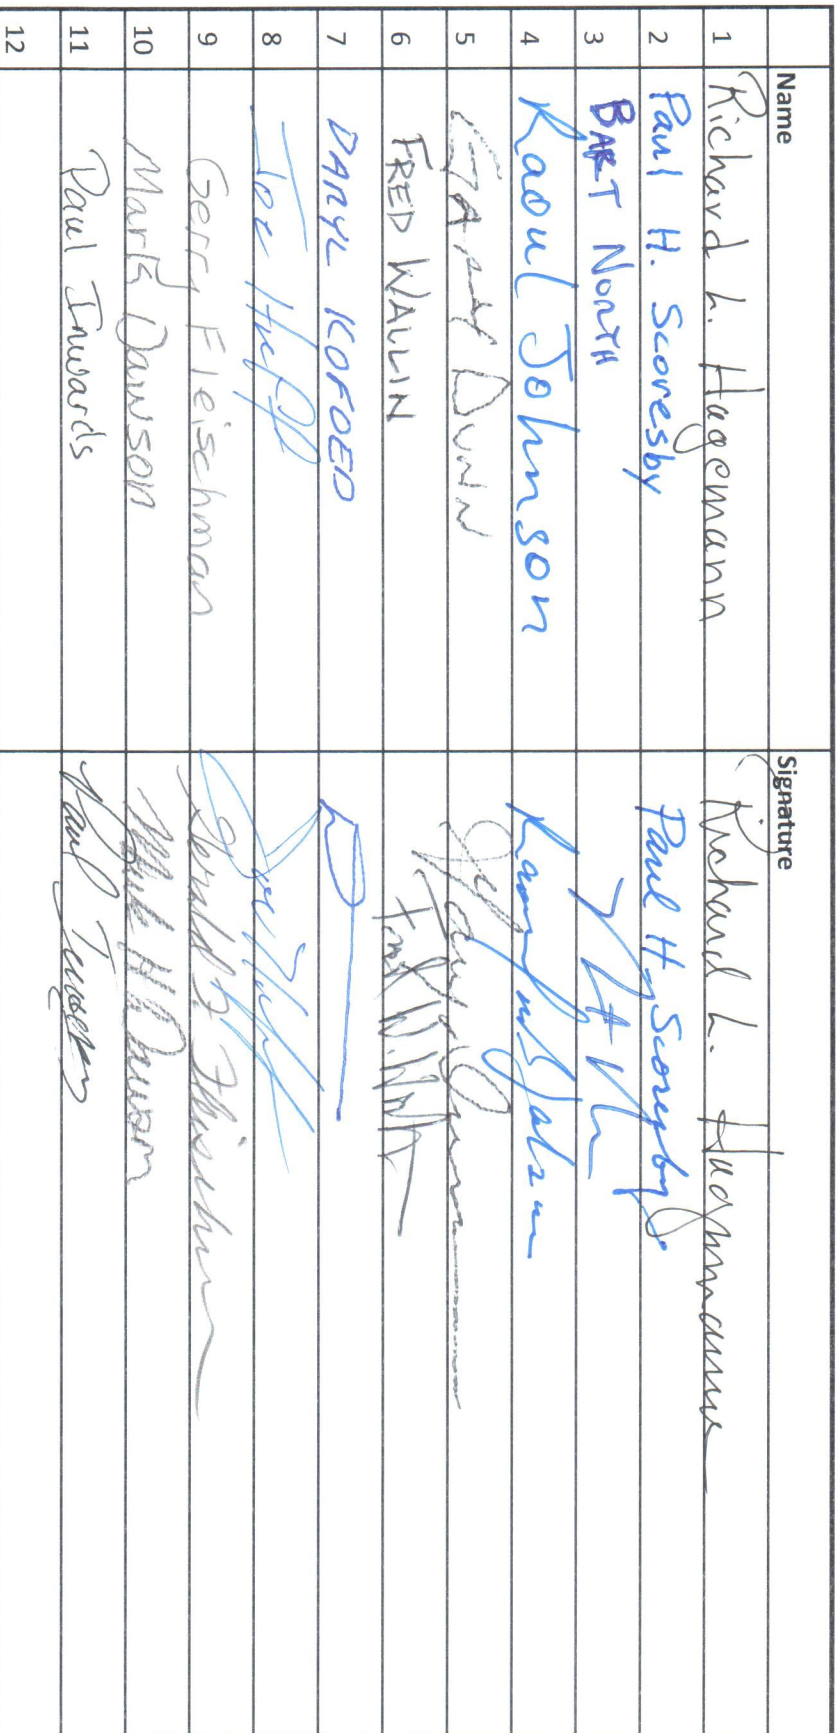 Name Signature
1 Richard L. Hagemann Richard L. Hagemann
2 Paul H. Scoresby Paul H. Scoresby
3 BART NORTH
4 Raoul Johnson
5 GARY DUNN Gary Dunn
6 FRED WALLIN
7 DARYL KOFOED
8 Joe Huff
9 Gerry Fleischman Gerald F Fleischman
10 Mark Dawson Mark H Dawson
11 Paul Inwards Paul Inwards
12